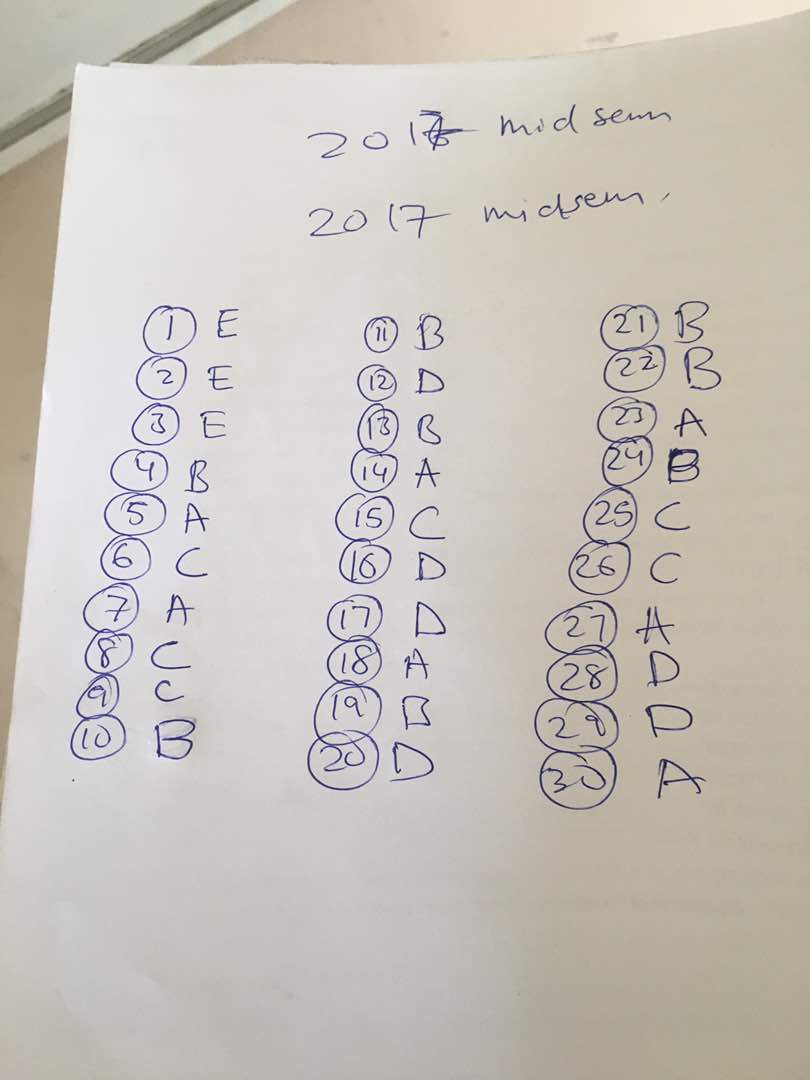 2017 mid sem
2017 midsem.
1 E
2 E
3 E
4 B
5 A
6 C
7 A
8 C
9 C
10 B
11 B
12 D
13 B
14 A
15 C
16 D
17 D
18 A
19 B
20 D
21 B
22 B
23 A
24 B
25 C
26 C
27 A
28 D
29 D
30 A